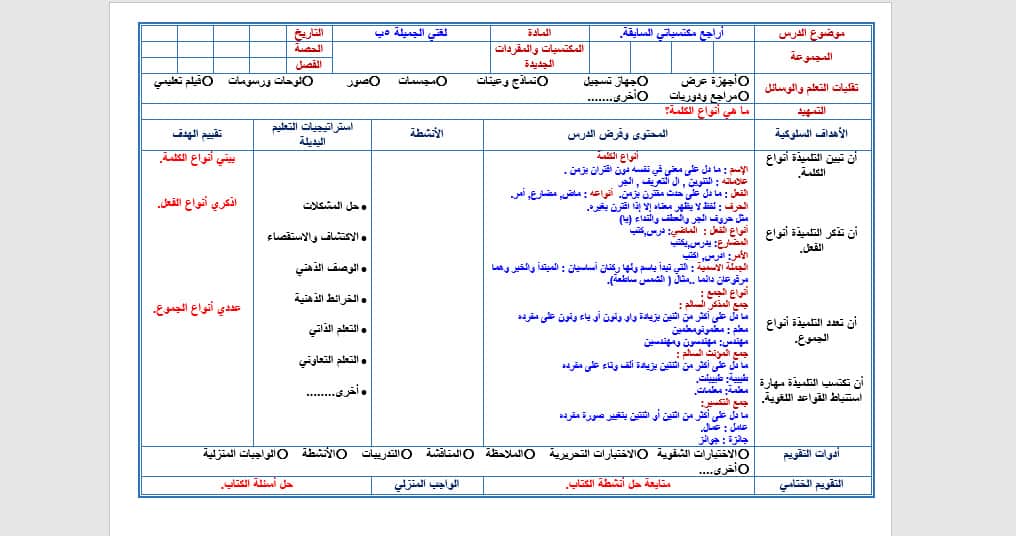 موضوع الدرس	أراجع مكتسباتي السابقة.	المادة	لغتي الجميلة ٥ب	التاريخ
المجموعة	المكتسبات والمفردات الجديدة	الحصة
الفصل
تقنيات التعلم والوسائل	Oأجهزة عرض Oجهاز تسجيل Oنماذج وعينات Oمجسمات Oصور Oلوحات ورسومات Oفيلم تعليمي
Oمراجع ودوريات Oأخرى.......
التمهيد	ما هي أنواع الكلمة؟
الأهداف السلوكية	المحتوى وعرض الدرس	الأنشطة	استراتيجيات التعليم البديلة	تقييم الهدف
أن تبين التلميذة أنواع
الكلمة.
أن تذكر التلميذة أنواع
الفعل.
أن تعدد التلميذة أنواع
الجموع.
أن تكتسب التلميذة مهارة
استنباط القواعد اللغوية.
أنواع الكلمة
الإسم : ما دل على معنى في نفسه دون اقتران بزمن .
علاماته : التنوين , ال التعريف , الجر
الفعل : ما دل على حدث مقترن بزمن. أنواعه : ماض, مضارع, أمر.
الحرف : لفظ لا يظهر معناه إلا إذا اقترن بغيره.
مثل حروف الجر والعطف والنداء (يا)
أنواع الفعل : الماضي: درس,كتب
المضارع: يدرس,يكتب
الأمر: ادرس, اكتب
الجملة الاسمية : التي تبدأ باسم ولها ركنان أساسيان : المبتدأ والخبر وهما
مرفوعان دائما ..مثال ( الشمس ساطعة).
أنواع الجمع :
جمع المذكر السالم :
ما دل على أكثر من اثنين بزيادة واو ونون أو ياء ونون على مفرده
معلم : معلمونومعلمين
مهندس: مهندسون ومهندسين
جمع المؤنث السالم :
ما دل على أكثر من اثنتين بزيادة ألف وتاء على مفرده
طبيبة: طبيبات.
معلمة: معلمات.
جمع التكسير:
ما دل على أكثر من اثنين أو اثنتين بتغيير صورة مفرده
عامل : عمال.
جائزة : جوائز
• حل المشكلات
• الاكتشاف والاستقصاء
• الوصف الذهني
• الخرائط الذهنية
• التعلم الذاتي
• التعلم التعاوني
• أخرى........
بيني أنواع الكلمة.
اذكري أنواع الفعل.
عددي أنواع الجموع.
أدوات التقويم	Oالاختبارات الشفوية Oالاختبارات التحريرية Oالملاحظة Oالمناقشة Oالتدريبات Oالأنشطة Oالواجبات المنزلية
Oأخرى....
التقويم الختامي	متابعة حل أنشطة الكتاب.	الواجب المنزلي	حل أسئلة الكتاب.